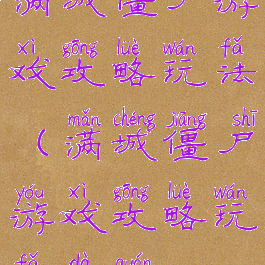 满城僵尸游
xì gōng lüè wán fǎ
戏攻略玩法
mǎn chéng jiāng shī
(满城僵尸
yóu xì gōng lüè wán
游戏攻略玩
fǎ dà quán